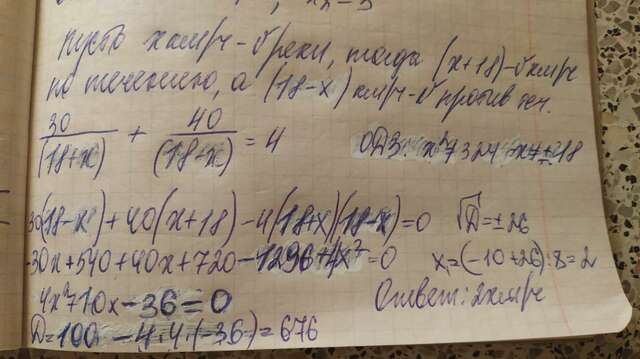 Пусть x км/ч – v реки, тогда (x+18) – v км/ч
по течению, а (18-x) км/ч – v против теч.
30/(18+x) + 40/(18-x) = 4 ОДЗ: x²≠324 x≠±18
30(18-x)+40(x+18)-4(18+x)(18-x)=0 √D=±26
-30x+540+40x+720-1296+4x²=0 x₁=(-10+26):8=2
4x²+10x-36=0 Ответ: 2 км/ч
D=100-4·4·(-36)=676